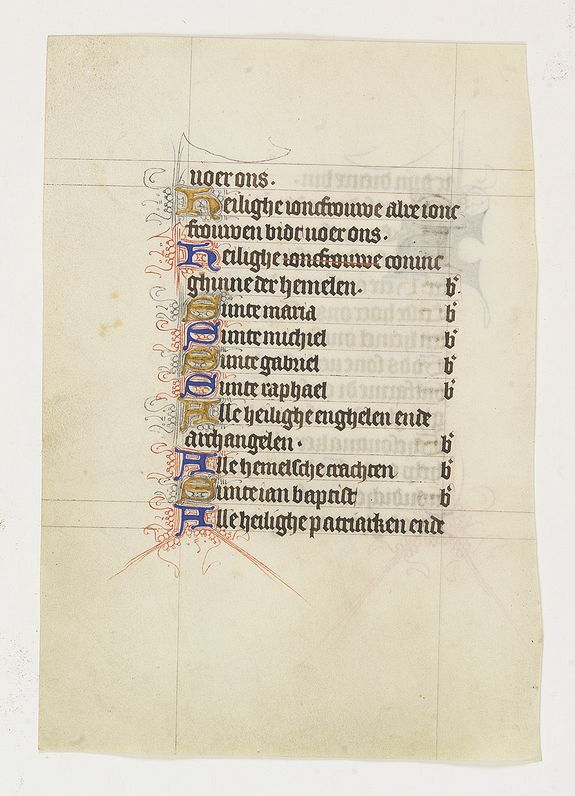 uoer ons.
Heilighe ioncfrouwe alre ionc
frouwen bidt uoer ons.
Heilighe ioncfrouwe coninc
ghinne der hemelen. b'
Sunte maria b'
Sunte michiel b'
Sunte gabriel b'
Sunte raphael b'
Alle heilighe enghelen ende
archangelen. b'
Alle hemelsche crachten b'
Sunte ian baptist b'
Alle heilighe patriarken ende